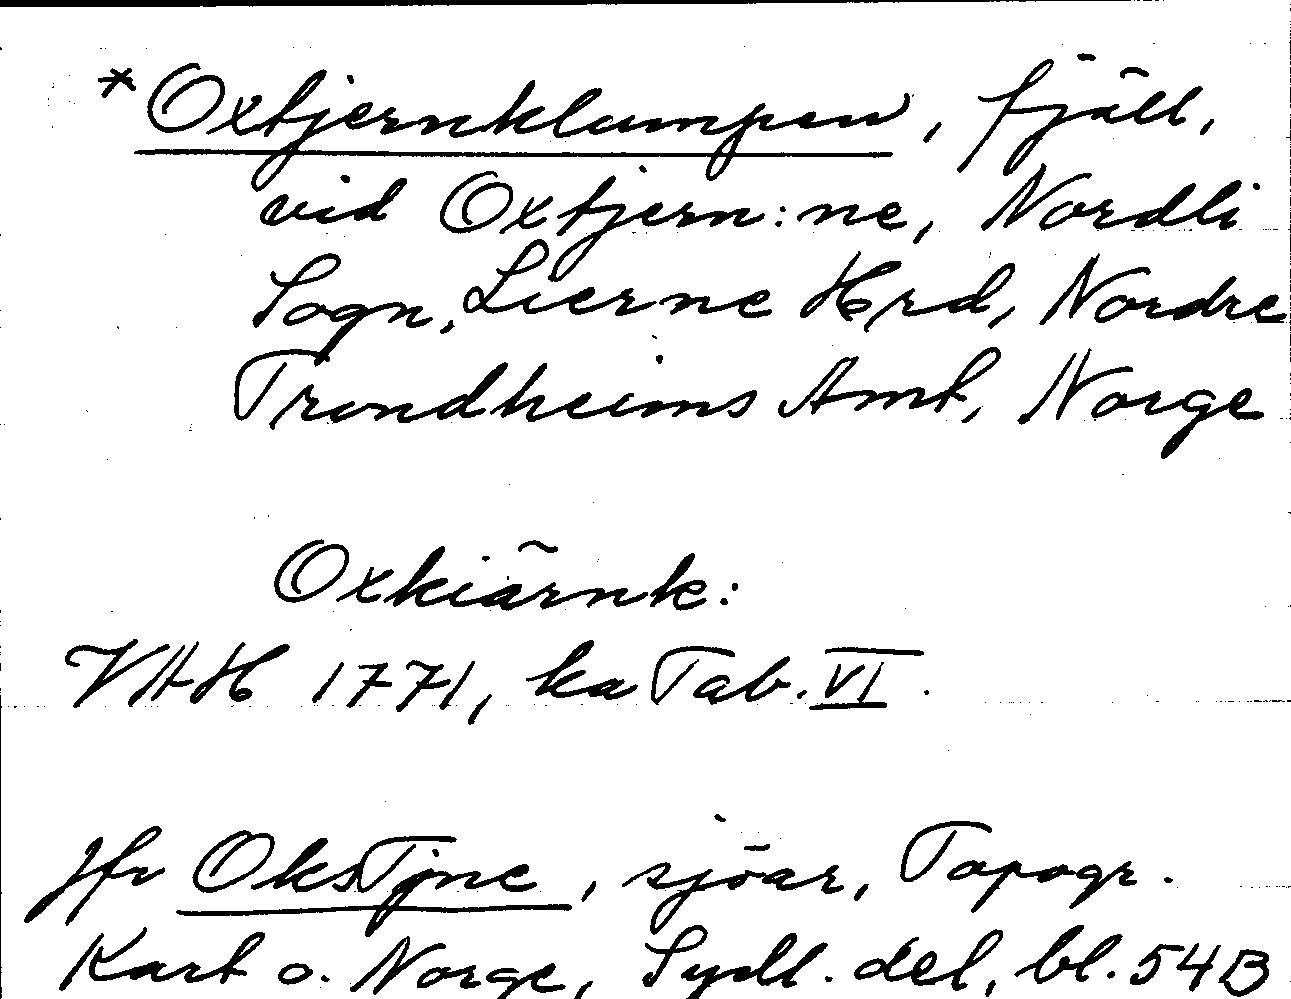 *Oxtjernklumpen, fjäll,
vid Oxtjern:ne, Nordli
Sogn, Lierne Hrd, Nordre
Trondheims Amt, Norge
Oxkiärnk:
VHH 1771, ka Tab. VI.
Jfr OksTjne, sjöar, Topogr.
Kart o. Norge, Sydl. del, bl. 54B